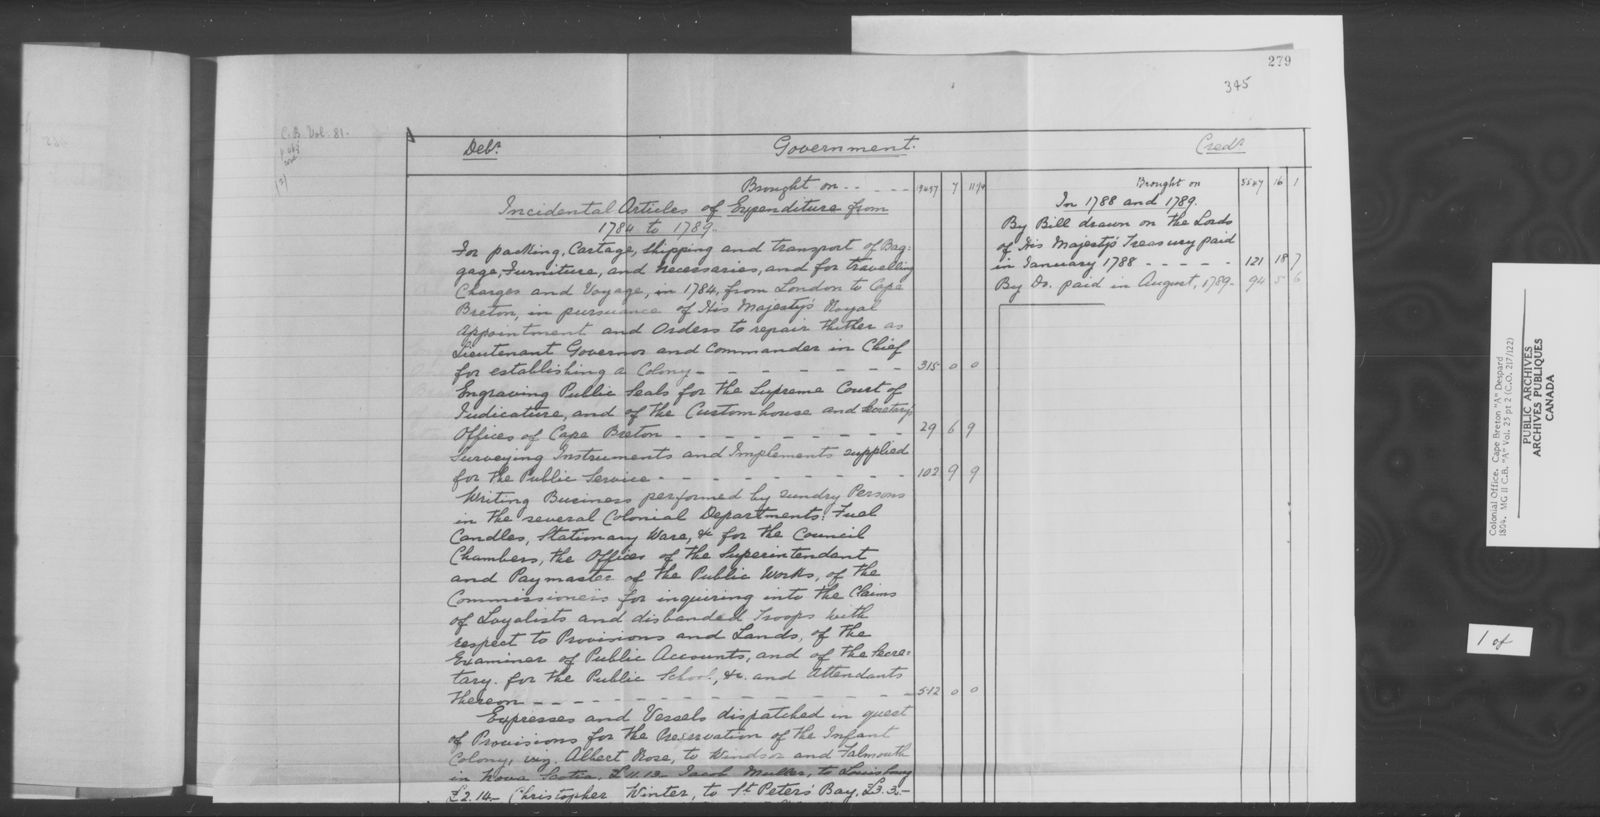 279
345
C.B Vol. 81.
Debr. Government. Credr.
Brought on - - - - - 7
Incidental Articles of Expenditure from
1784 to 1789.
For packing, Cartage, Shipping and transport of Bag:
gage, Furniture, and Necessaries, and for travelling
Charges and Voyage, in 1784, from London to Cape
Breton, in pursuance of His Majesty's Royal
Appointment and Orders to repair thither as
Lieutenant Governor and Commander in Chief
for establishing a Colony - - - - - - - 315 0 0
Engraving Public Seals for the Supreme Court of
Judicature, and of the Customhouse and Secretary's
Offices of Cape Breton - - - - - - - - 29 6 9
Surveying Instruments and Implements supplied
for the Public Service - - - - - - - - 102 9 9
Writing Business performed by sundry Persons
in the several Colonial Departments: Fuel
Candles, Stationary Ware, &c for the Council
Chambers, the Offices of the Superintendant
and Paymaster of the Public Works, of the
Commissioners for inquiring into the Claims
of Loyalists and disbanded Troops with
respect to Provisions and Lands, of the
Examiner of Public Accounts, and of the Secre:
tary. for the Public School, &c. and Attendants
thereon - - - - - - - - - - - 512 0 0
Expresses and Vessels dispatched in quest
of Provisions for the Preservation of the Infant
Colony, viz. Albert Rose, to Windsor and Falmouth
in Nova Scotia, £11.13- Jacob Muller, to Louisburg
£2.14- Christopher Winter, to St Peter's Bay, £3.3.-
Brought on 5547 16 1
In 1788 and 1789.
By Bill drawn on the Lords
of His Majesty's Treasury paid
in January 1788 - - - - - 121 18 7
By Do. paid in August, 1789- 94 5 6
Colonial Office. Cape Breton "A" Despard
1804. MG 11 C.B. "A" Vol. 25 pt 2 (C.O. 217/122)
PUBLIC ARCHIVES
ARCHIVES PUBLIQUES
CANADA
1 of